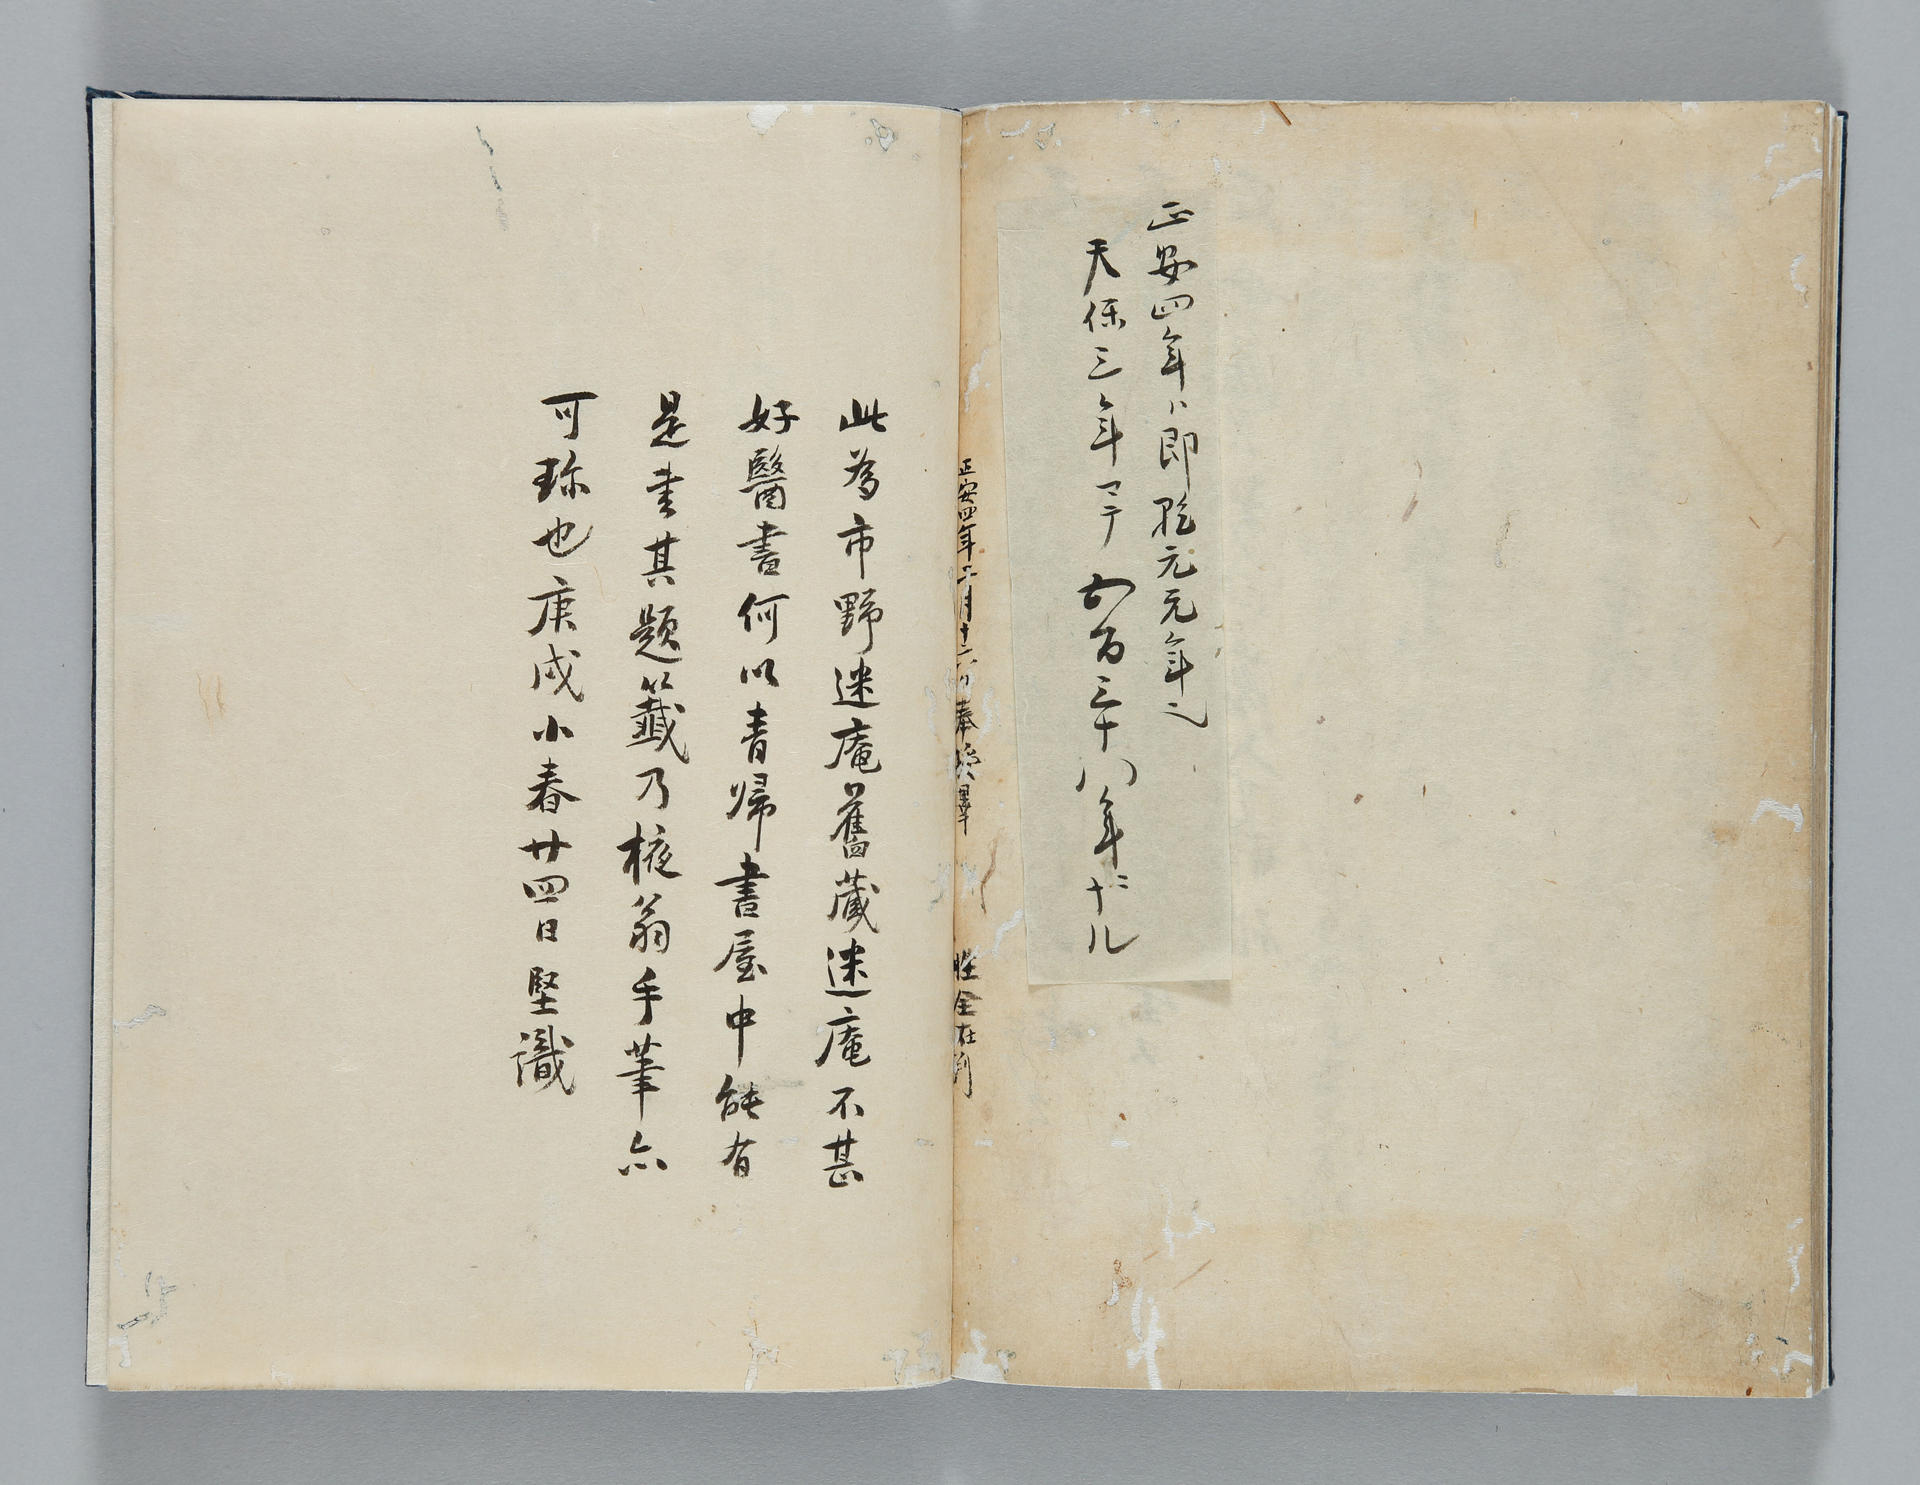 正安四年ハ即乾元元年也
天保三年マテ五百三十八年ニナル
正安四年二月十二日奉授畢　性全在判
此為市野迷庵舊藏迷庵不甚
好醫書書何以青歸書屋中能有
是書其題籤乃棭翁手筆亦
可珎也庚戌小春廿四日堅識